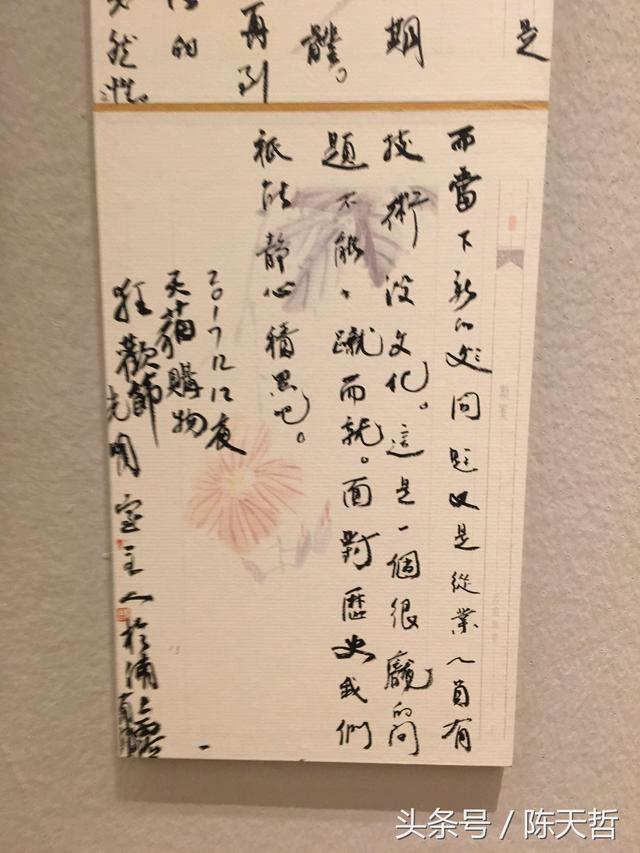 是
期
體。
再到
的
然性。
而當下新的文问題又是從業人員有
技術没文化。這是一個很龐的问
題不能、蹴而就。面對歷史我們
祇能静心積思吧。
2017 12 12夜
天猫購物
狂歡節光明室主人於浦上
头条号 / 陈天哲